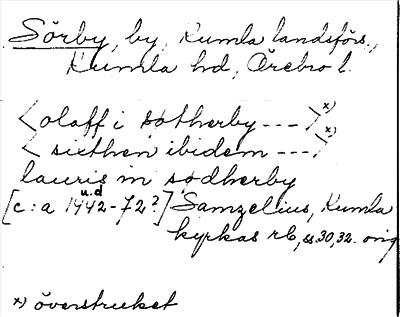 Sörby, by, Kumla landsförs.,
Kumla hd, Örebro l.
<olaff i søtherby --->x)
<sixthen ibidem --->x)
lauris m sødherby
u.d
[c:a 1442-72?] Samzelius, Kumla
kyrkas rb, ss. 30, 32. orig
x) överstruket